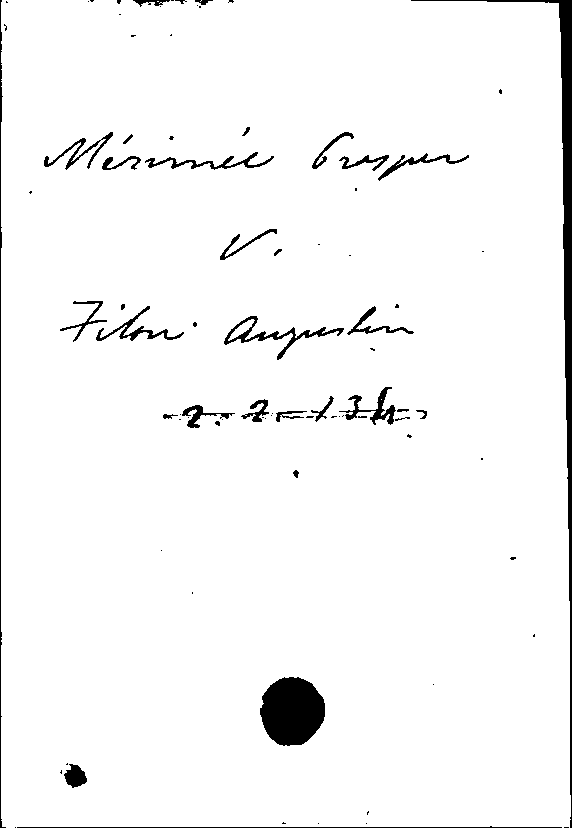 Mérimée Prosper
V.
Filon Augustin
2. 2. 134